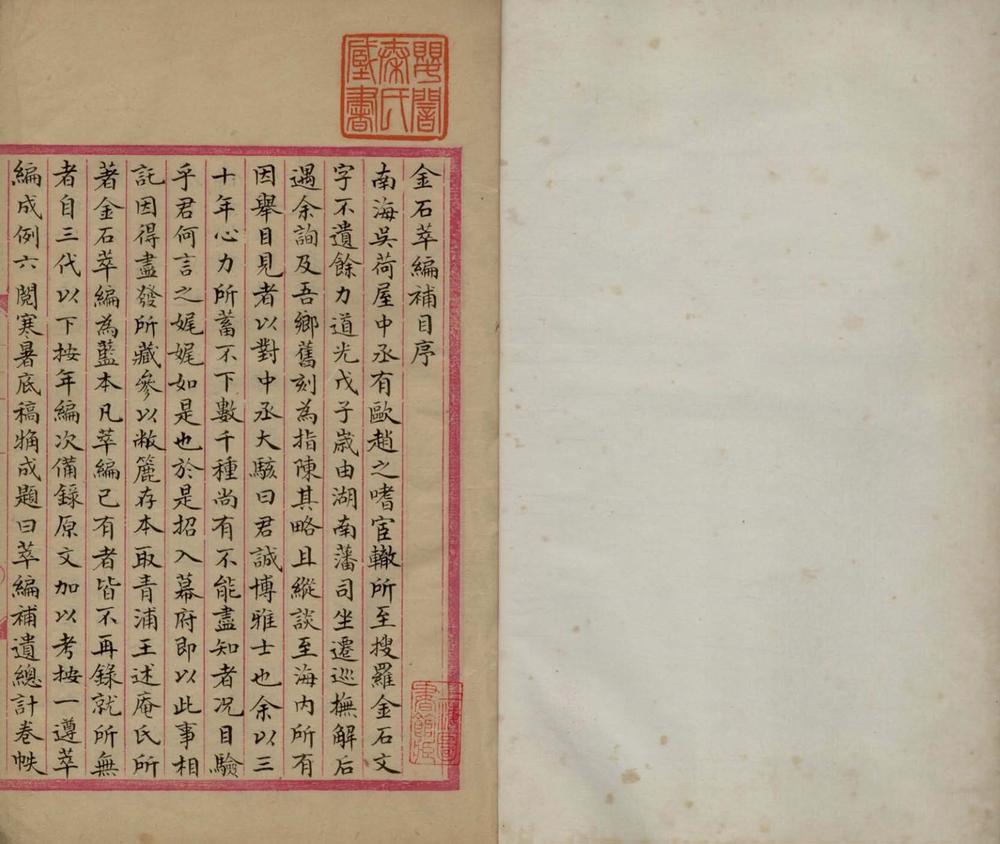 嬰闇秦氏藏書
金石萃編補目序
南海吳荷屋中丞有歐趙之嗜宦轍所至搜羅金石文
字不遺餘力道光戊子歲由湖南藩司坐遷巡撫解后
遇余詢及吾鄉舊刻為指陳其略且縱談至海内所有
因舉目見者以對中丞大駭曰君誠博雅士也余以三
十年心力所蓄不下數千種尚有不能盡知者况目驗
乎君何言之娓娓如是也於是招入幕府即以此事相
託因得盡發所藏參以敝簏存本取青浦王述庵氏所
著金石萃編為藍本凡萃編已有者皆不再錄就所無
者自三代以下按年編次備錄原文加以考按一遵萃
編成例六閱寒暑底稿觕成題曰萃編補遺總計卷帙